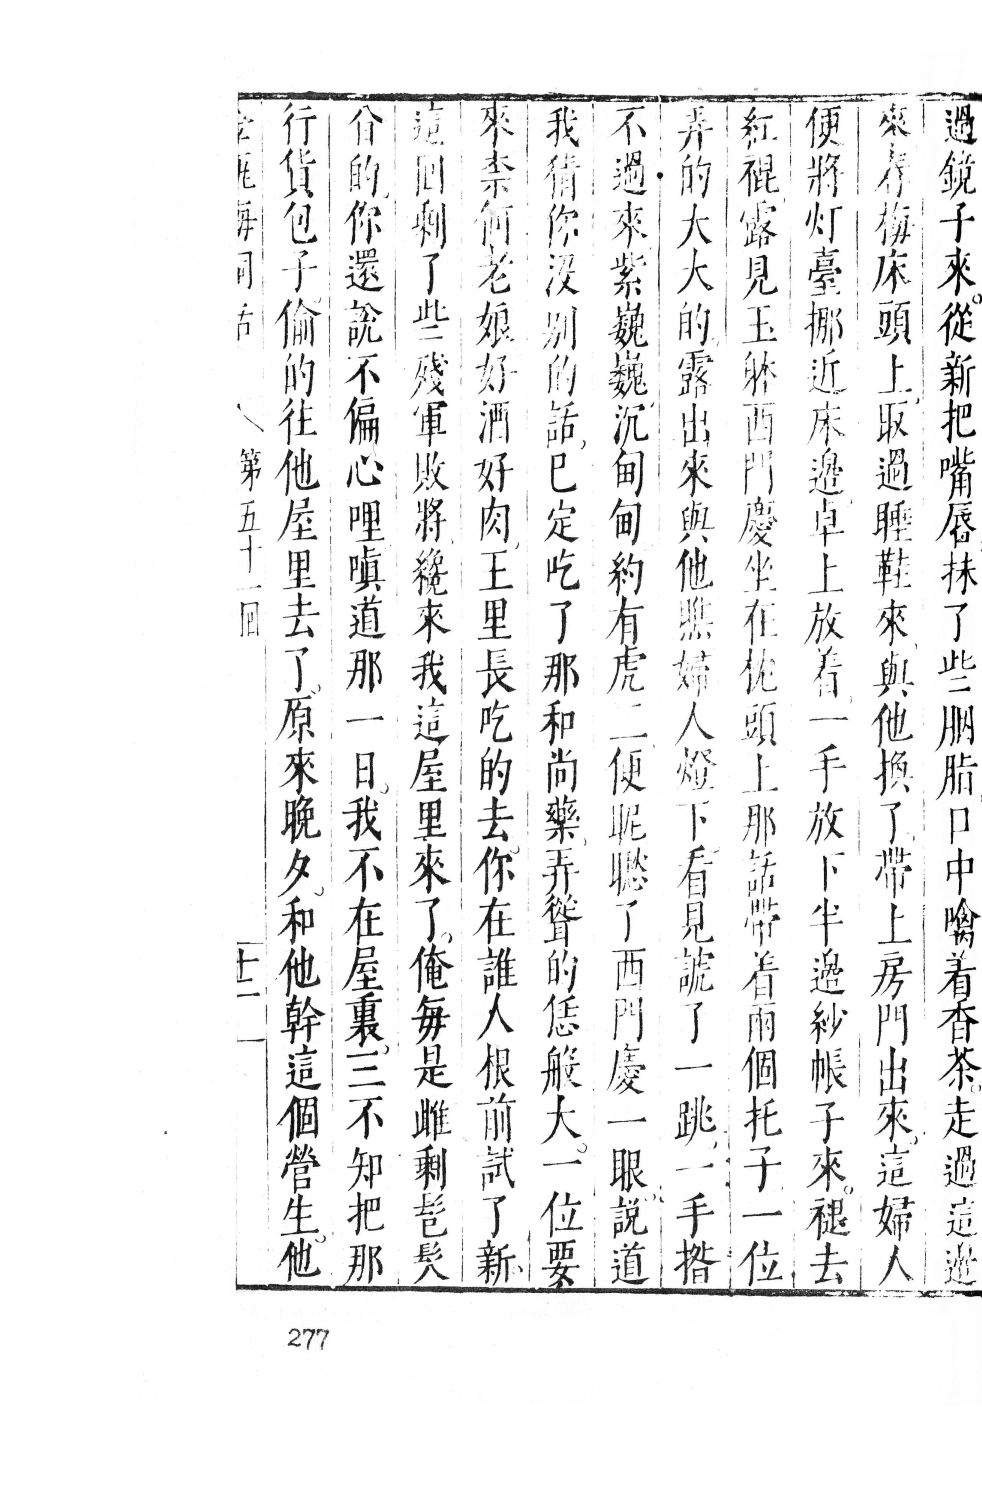 過鏡子來。從新把嘴唇抹了些胭脂。口中噙着香茶。走過這邊
來。春梅床頭上。取過睡鞋來。與他換了。帶上房門出來。這婦人
便將灯臺挪近床邊。卓上放着。一手放下半邊紗帳子來。褪去
紅裩。露見玉躰。西門慶坐在枕頭上。那話帶着兩個托子。一位
弄的大大的。露出來與他瞧。婦人燈下。看見諕了一跳。一手揝
不過來。紫巍巍。沉甸甸。約有虎二。便眤瞅了西門慶一眼。說道
我猜你沒別的話。已定吃了那和尚藥。弄聳的恁般大。一位要
來柰何老娘。好酒好肉。王里長吃的去。你在誰人根前試了新
這回剩了些殘軍敗將。纔來我這屋里來了。俺每是雌剩髱㒲
㒲的。你還說不偏心哩。嗔道那一日。我不在屋裏。三不知把那
行貨包子。偷的往他屋里去了。原來晚夕。和他幹這個營生。他
金瓶梅詞話
第五十一回
十二
277